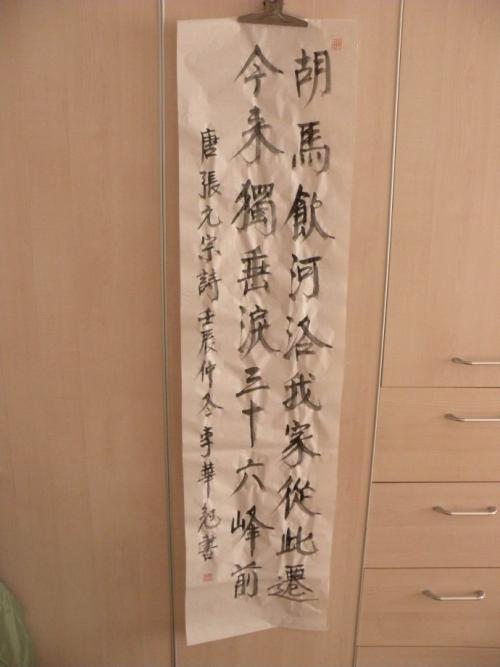 胡馬飲河洛我家從此遷
今来獨垂淚三十六峰前
唐張元宗詩壬辰仲冬李華冠書